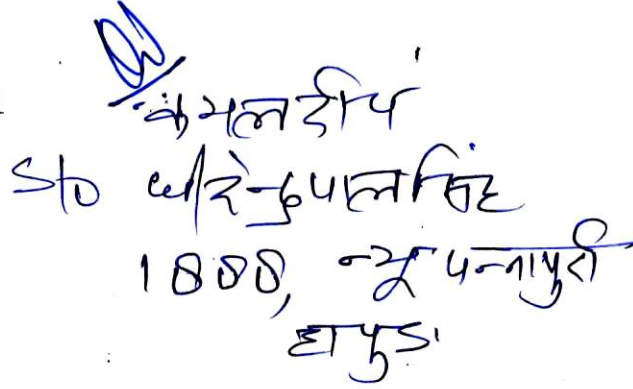 कमलदीप
S/o धीरेन्द्रपाल सिंह
1888, न्यू पन्नापुरी
हापुड़